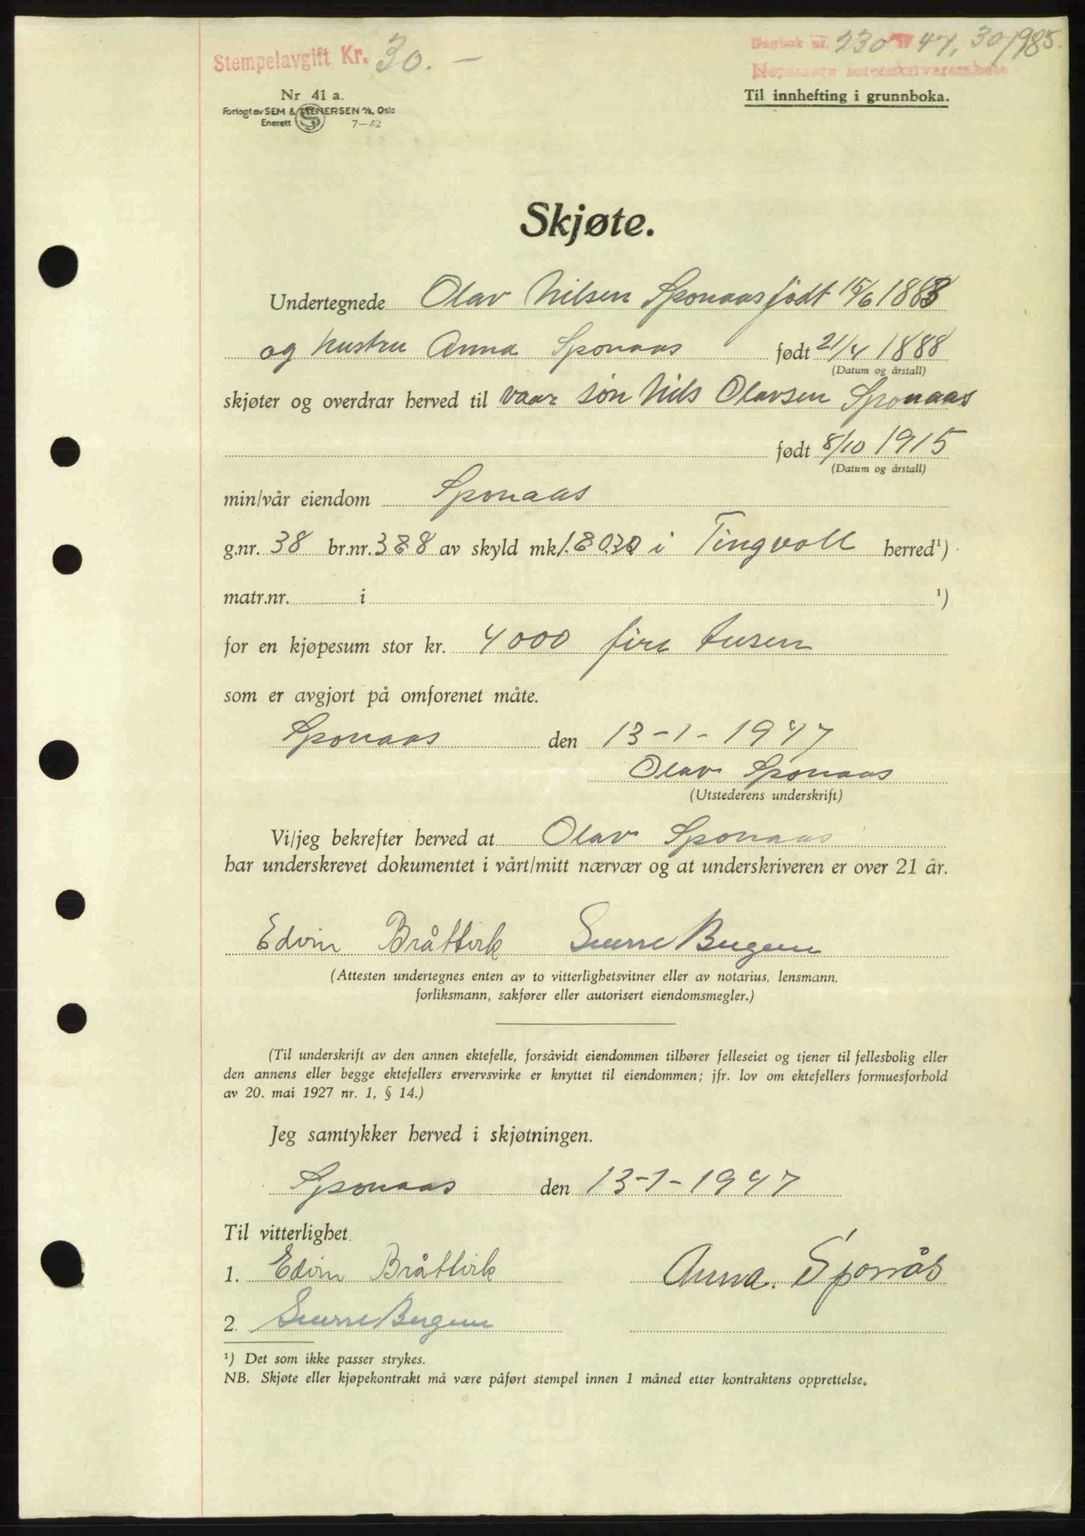 Stempelavgift Kr. 30.–
Dagbok nr. 230 47, 30/1 985.
Nr 41 a.
Forlagt av SEM & STENERSEN A/S, Oslo
Enerett 7-42
Til innhefting i grunnboka.
Skjøte.
Undertegnede Olav Nilsen Sponaas født 15/6 1883
og hustru Anna Sponaas født 21/4 1888
(Datum og årstall)
skjøter og overdrar herved til vaar søn Nils Olavsen Sponaas
født 8/10 1915
(Datum og årstall)
min/vår eiendom Sponaas
g.nr. 38 br.nr. 388 av skyld mk i Tingvoll herred¹)
matr.nr. i ¹)
for en kjøpesum stor kr. 4000 fire tusen
som er avgjort på omforenet måte.
Sponaas den 13-1-1947
Olav Sponaas
(Utstederens underskrift)
Vi/jeg bekrefter herved at Olav Sponaas
har underskrevet dokumentet i vårt/mitt nærvær og at underskriveren er over 21 år.
Edvin Bråttirk Sverre
(Attesten undertegnes enten av to vitterlighetsvitner eller av notarius, lensmann,
forliksmann, sakfører eller autorisert eiendomsmegler.)
(Til underskrift av den annen ektefelle, forsåvidt eiendommen tilhører felleseiet og tjener til fellesbolig eller
den annens eller begge ektefellers ervervsvirke er knyttet til eiendommen; jfr. lov om ektefellers formuesforhold
av 20. mai 1927 nr. 1, § 14.)
Jeg samtykker herved i skjøtningen.
Sponaas den 13-1-1947
Til vitterlighet.
1. Edvin Bråttirk Anna. Sponås
2. Sverre
¹) Det som ikke passer strykes.
NB. Skjøte eller kjøpekontrakt må være påført stempel innen 1 måned etter kontraktens opprettelse.